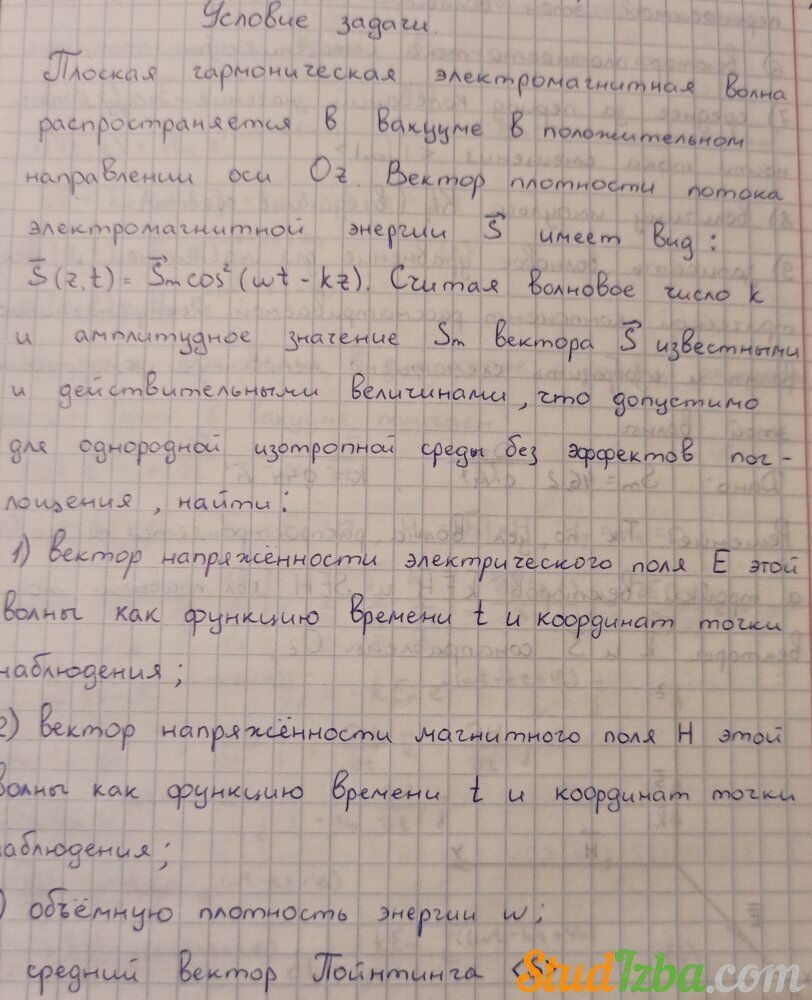 Условие задачи.
Плоская гармоническая электромагнитная волна
распространяется в вакууме в положительном
направлении оси Oz. Вектор плотности потока
электромагнитной энергии S⃗ имеет вид:
S⃗(z,t) = S⃗m cos²(ωt - kz). Считая волновое число k
и амплитудное значение Sm вектора S⃗ известными
и действительными величинами, что допустимо
для однородной изотропной среды без эффектов пог-
лощения, найти:
1) вектор напряжённости электрического поля E этой
волны как функцию времени t и координат точки
наблюдения;
2) вектор напряжённости магнитного поля H этой
волны как функцию времени t и координат точки
аблюдения;
) объёмную плотность энергии w;
средний вектор Пойнтинга <S>
StudIzba.com